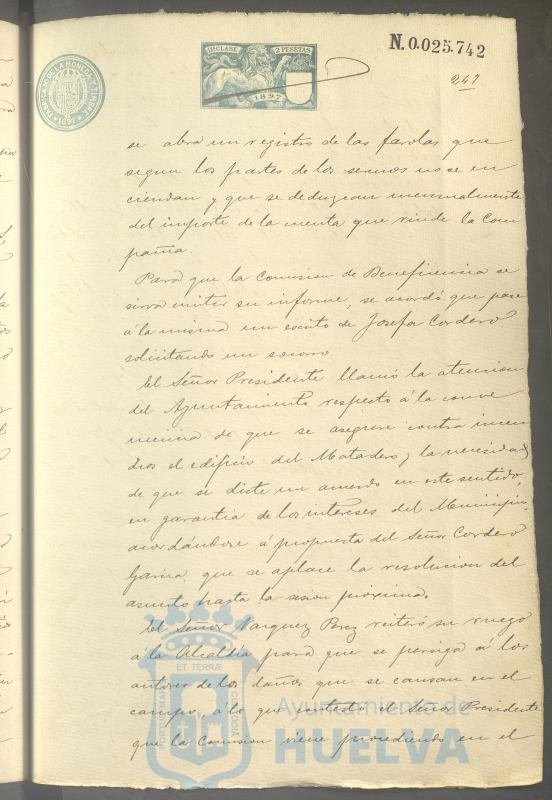 11ª CLASE 2 PESETAS
1897
N.0.025.742
FABRICA NACIONAL DE LA MONEDA Y TIMBRE
1897
247
se abra un registro de las farolas que
segun los partes de los serenos no se en
ciendan y que se deduzcan mensualmente
del importe de la cuenta que rinde la Com
pañia.
Para que la Comision de Beneficencia se
sirva emitir su informe, se acordó que pase
á la misma un escrito de Josefa Cordero
solicitando un socorro.
El Señor Presidente llamó la atencion
del Ayuntamiento respecto á la conve
niencia de que se asegure contra incen
dios el edificio del Matadero y la necesidad
de que se dicte un acuerdo en este sentido,
en garantia de los intereses del Municipio,
acordándose á propuesta del Señor Cordero
Garcia, que se aplace la resolucion del
asunto hasta la sesion próxima.
El Señor Vazquez Perez reiteró su ruego
á la Alcaldia para que se persiga á los
autores de los daños que se causan en el
campo, á lo que contestó el Señor Presidente
que la Comision viene procediendo en el
PORTUS MARIS ET TERRÆ CUSTODIA
Ayuntamiento de
HUELVA